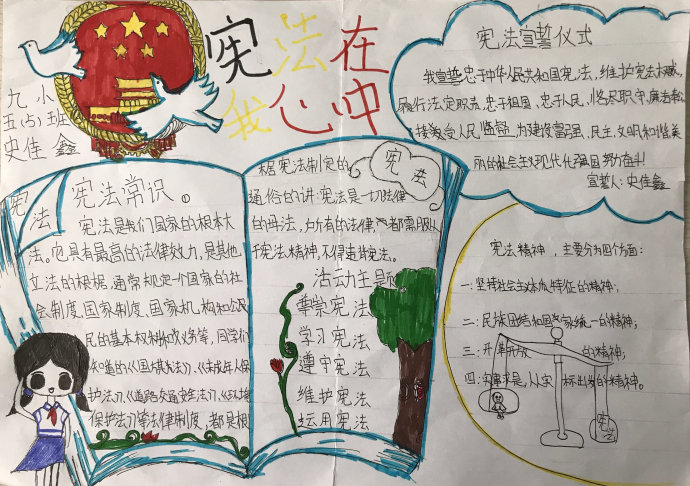 宪法在
我心中
九小
五(六)班
史佳鑫
宪法宣誓仪式
我宣誓忠于中华人民共和国宪法,维护宪法权威,
履行法定职责,忠于祖国,忠于人民,恪尽职守,廉洁奉公
接受人民监督,为建设富强,民主,文明和谐美
丽的社会主义现代化强国努力奋斗!
宣誓人:史佳鑫
宪法
宪法常识①
宪法是我们国家的根本大
法。它具有最高的法律效力,是其他
立法的根据,通常规定一个国家的社
会制度,国家制度,国家机构和公民
民的基本权利和义务等,同学们
知道的《国旗法》《未成年人保
护法》《道路交通安全法》《环境
保护法》等法律制度,都是根
据宪法制定的
通俗的讲:宪法是一切法律
的母法,所有的法律都需服从
于宪法精神,不得违背宪法。
宪法
活动主题
尊崇宪法
学习宪法
遵守宪法
维护宪法
运用宪法
宪法精神,主要分为四个方面:
一:坚持社会主义本质特征的精神;
二:民族团结和国家统一的精神;
三:开放的精神;
四:实事求是,从实标出发的精神。
宪法